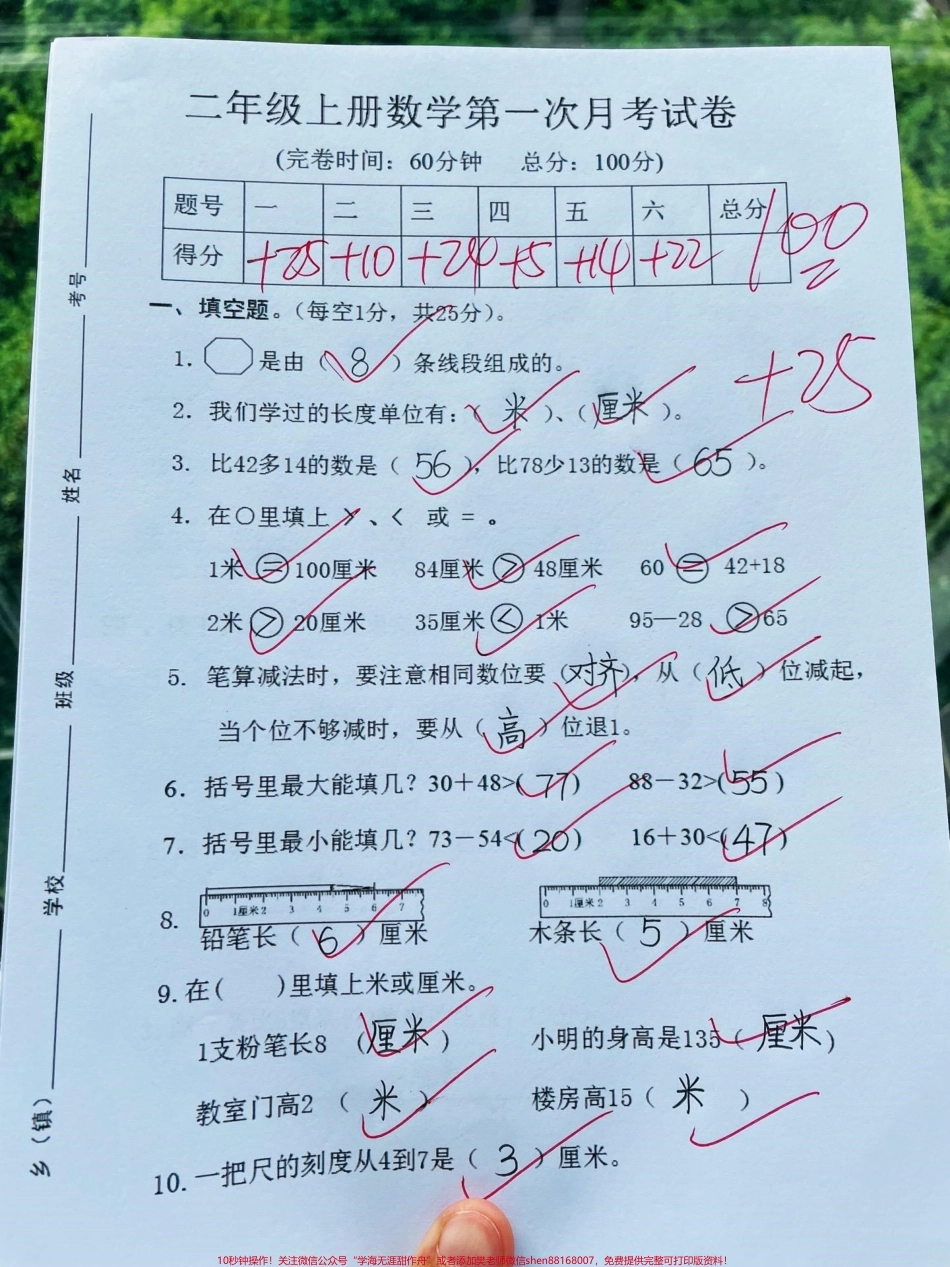 二年级上册数学第一次月考试卷
(完卷时间：60分钟 总分：100分)
题号 一 二 三 四 五 六 总分
得分 +25 +10 +24 +5 +14 +22 100
一、填空题。（每空1分，共25分）。
+25
1. 是由（ 8 ）条线段组成的。
2. 我们学过的长度单位有：（ 米 ）、（ 厘米 ）。
3. 比42多14的数是（ 56 ），比78少13的数是（ 65 ）。
4. 在○里填上 > 、< 或 = 。
1米 = 100厘米 84厘米 > 48厘米 60 = 42+18
2米 > 20厘米 35厘米 < 1米 95—28 > 65
5. 笔算减法时，要注意相同数位要（对齐），从（ 低 ）位减起，
当个位不够减时，要从（ 高 ）位退1。
6. 括号里最大能填几？30＋48>( 77 ) 88－32>( 55 )
7. 括号里最小能填几？73－54<( 20 ) 16＋30<( 47 )
0 1厘米 2 3 4 5 6 7 0 1厘米 2 3 4 5 6 7 8
8. 铅笔长（ 6 ）厘米 木条长（ 5 ）厘米
9. 在( )里填上米或厘米。
1支粉笔长8 （厘米） 小明的身高是135（ 厘米 ）
教室门高2 （ 米 ） 楼房高15（ 米 ）
10. 一把尺的刻度从4到7是（ 3 ）厘米。
乡（镇） 学校 班级 姓名 考号
10秒钟操作！关注微信公众号“学海无涯甜作舟”或者添加樊老师微信shen88168007，免费提供完整可打印版资料！